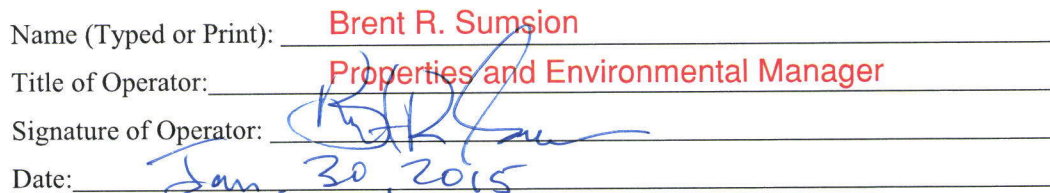 Name (Typed or Print): Brent R. Sumsion
Title of Operator: Properties and Environmental Manager
Signature of Operator:
Date: Jan. 30, 2015